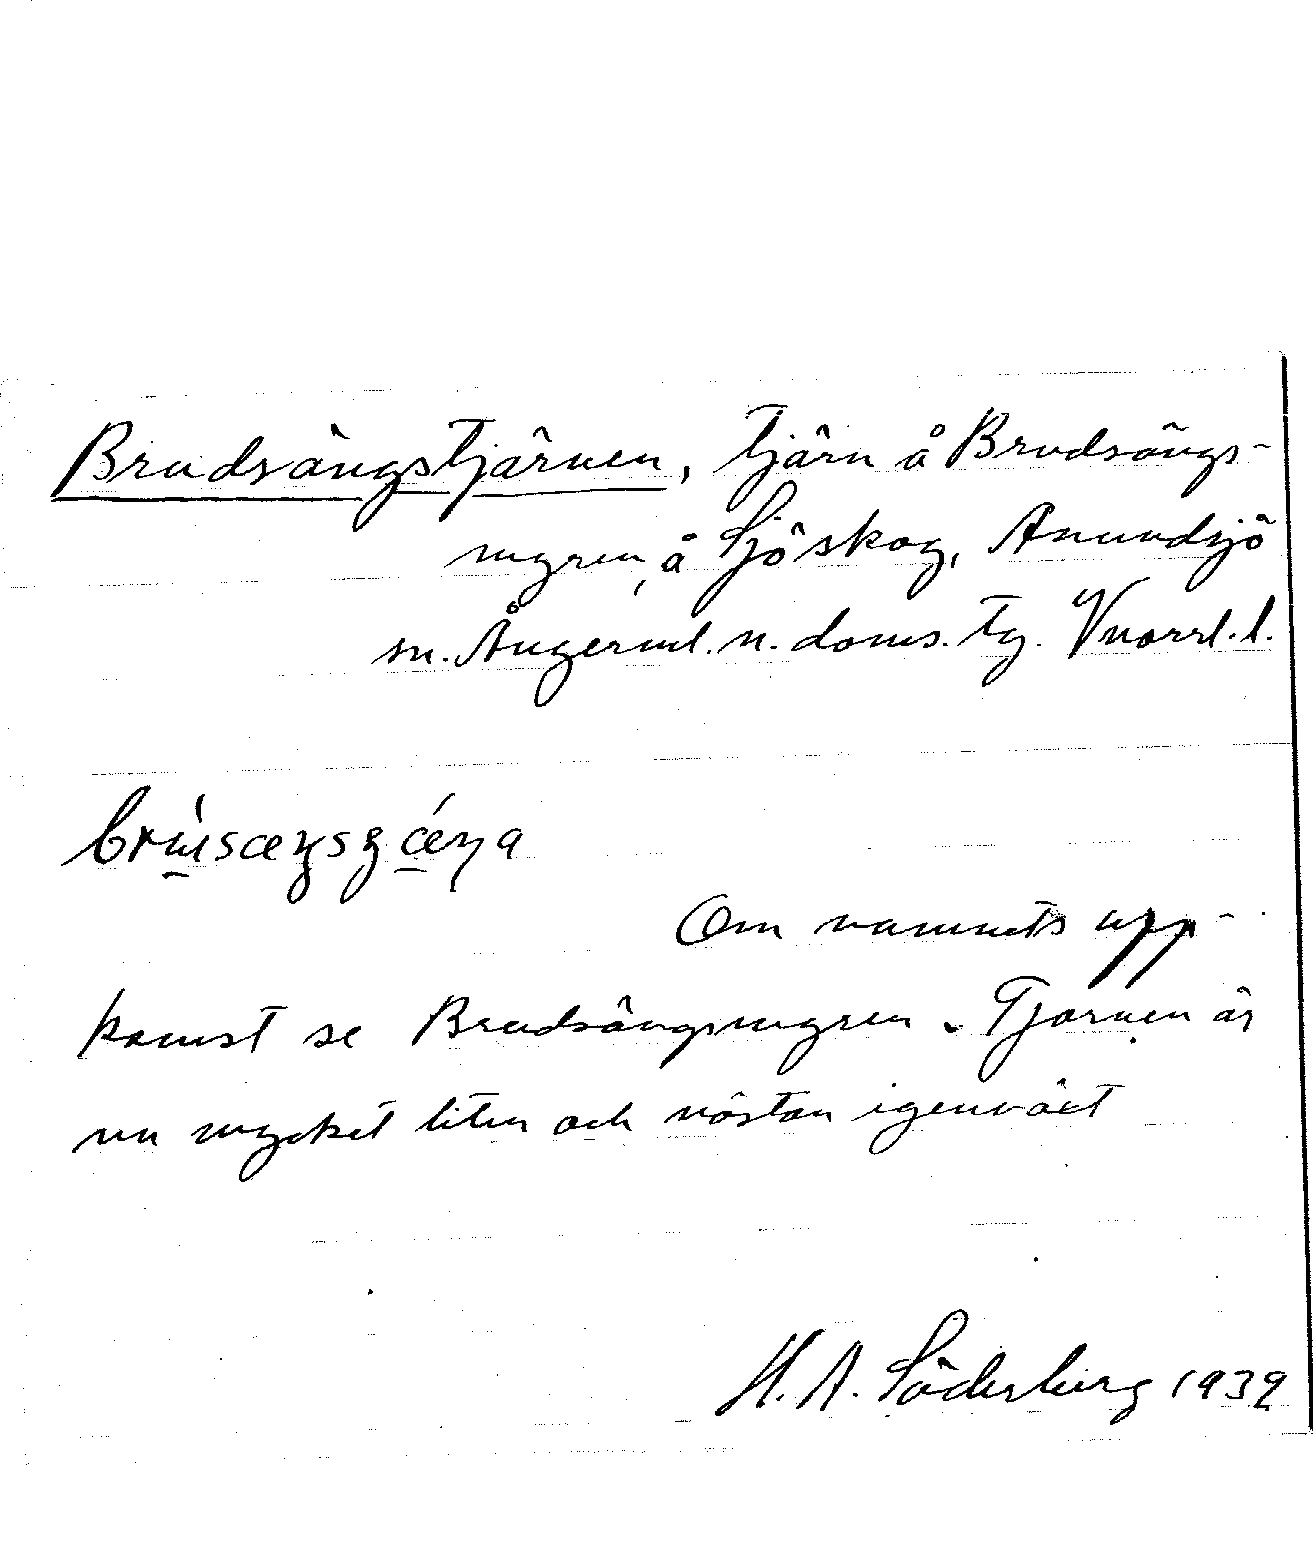 Brudsängstjärnen, tjärn å Brudsängs-
myren, å Sjöskog, Anundsjö
sn. Ångerml. n. doms. tg. Vnorrl. l.
Om namnets upp-
komst se Brudsängsmyren. Tjärnen är
nu mycket liten och nästan igenväxt
H. A. Söderberg 1939